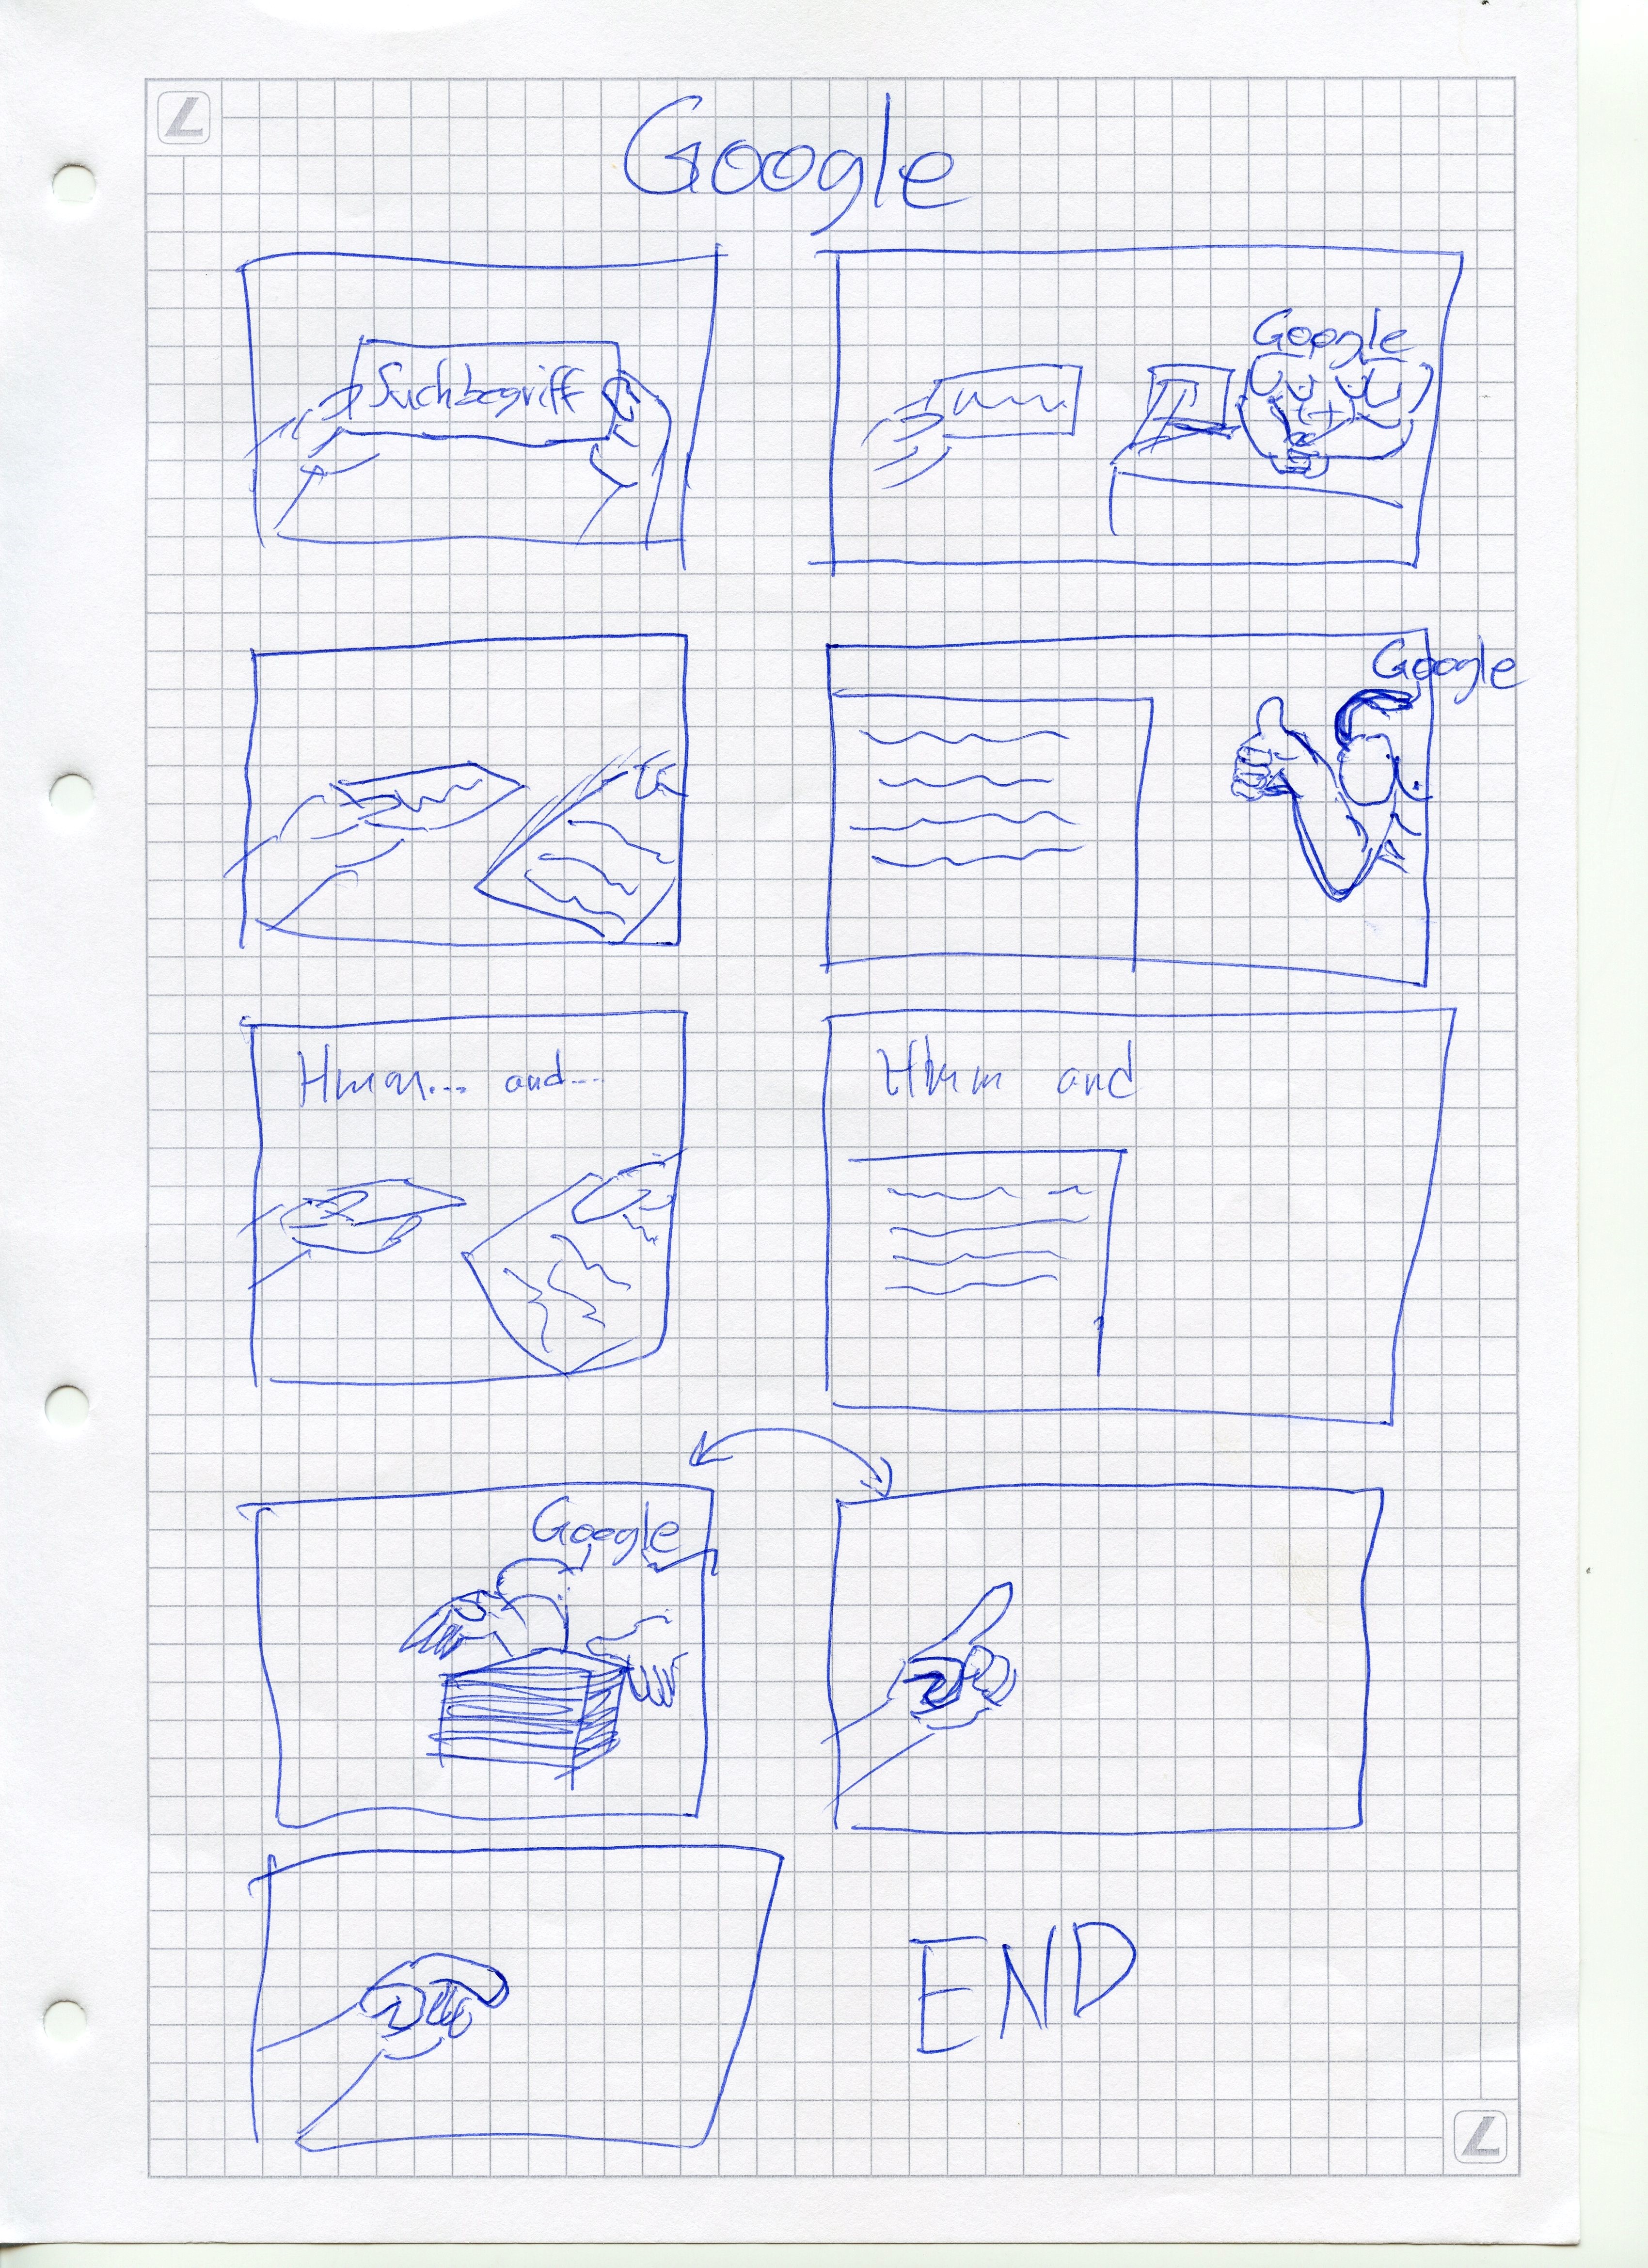 Google
Suchbegriff
Google
Google
Hmm... and...
Hmm and
Google
END